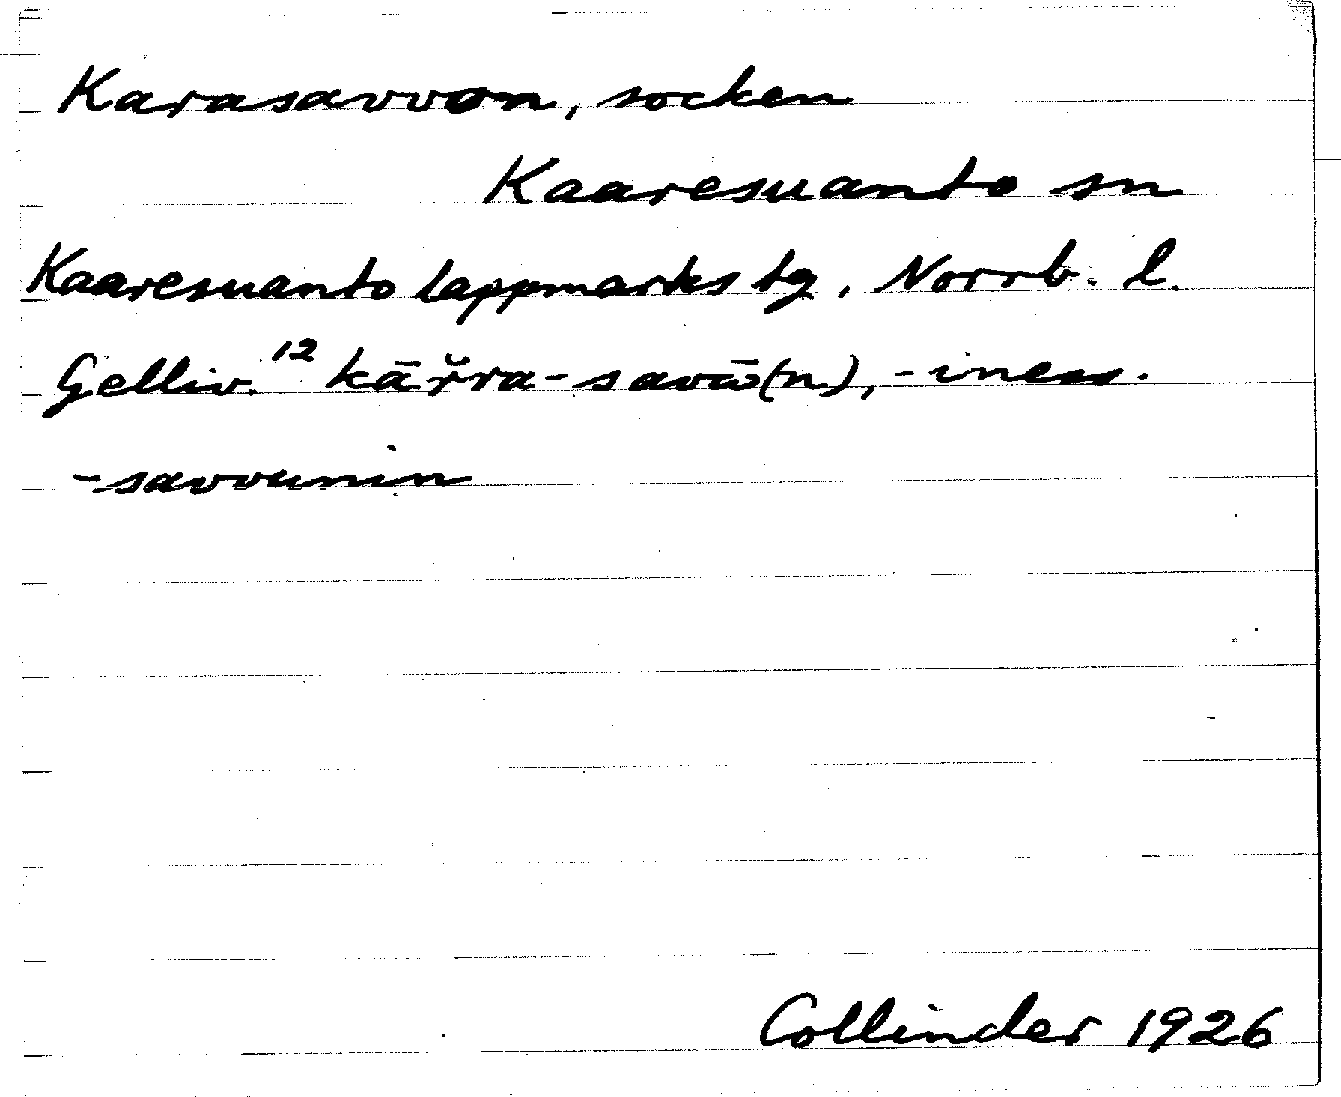 Karasavvon, socken
Kaaresuanto sn
Kaaresuanto lappmarks tg, Norrb. l.
Gelliv.¹² kāřra-savω̄(n), -iness.
-savvunin
Collinder 1926